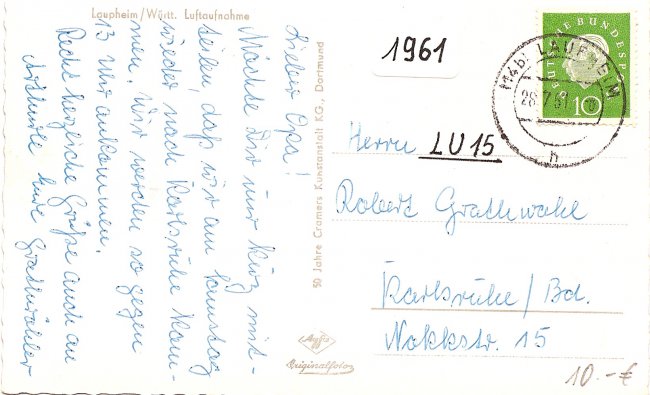 Laupheim/Württ. Luftaufnahme
Lieber Opa!
Möchte Dir nur kurz mit-
teilen, daß wir am Samstag
wieder nach Karlsruhe kom-
men. Wir werden so gegen
13 Uhr ankommen.
Recht herzliche Grüße auch an
Eure Grathwohler
50 Jahre Cramers Kunstanstalt KG., Dortmund
Agfa
Originalfoto
1961
DEUTSCHE BUNDESPOST
10
14b LAUPHEIM
28.7.61
h
Herrn
LU 15
Robert Grathwohl
Karlsruhe/Bd.
Nokkstr. 15
10.-€